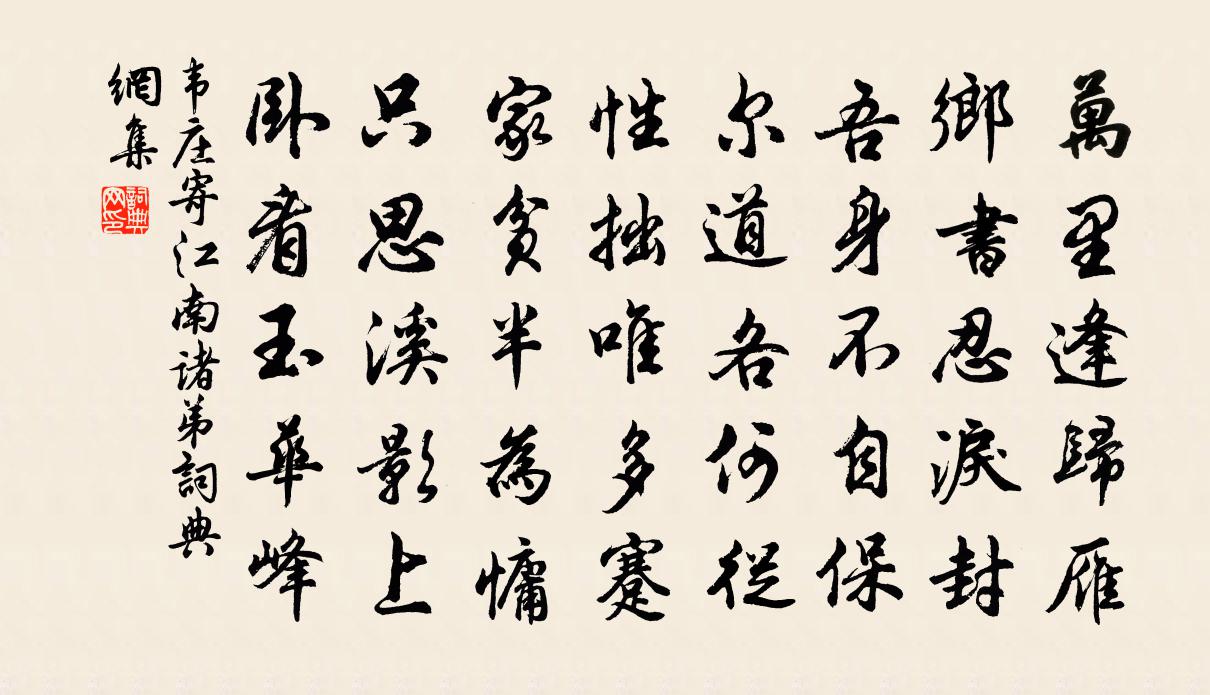 萬里逢歸雁
鄉書忍淚封
吾身不自保
尔道各何從
性拙唯多蹇
家貧半為慵
只思溪影上
臥看玉華峰
韦庄寄江南诸弟詞典
網集
詞典
网印